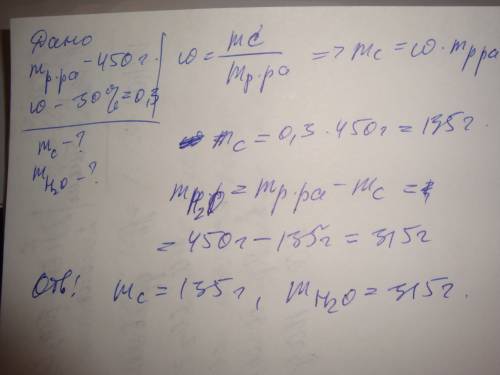 Дано
mр-ра - 450г.
ω - 30% = 0,3
mc - ?
mH2O - ?
ω = mc / mр-ра => mc = ω · mр-ра
mc = 0,3 · 450г = 135г.
mH2O = mр-ра - mc =
= 450г - 135г = 315г
Отв: mc = 135г, mH2O = 315г.